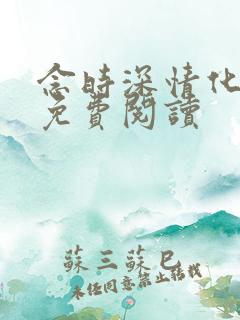 念時深情化
免費閱讀
蘇三蘇巳
未經同意禁止轉載